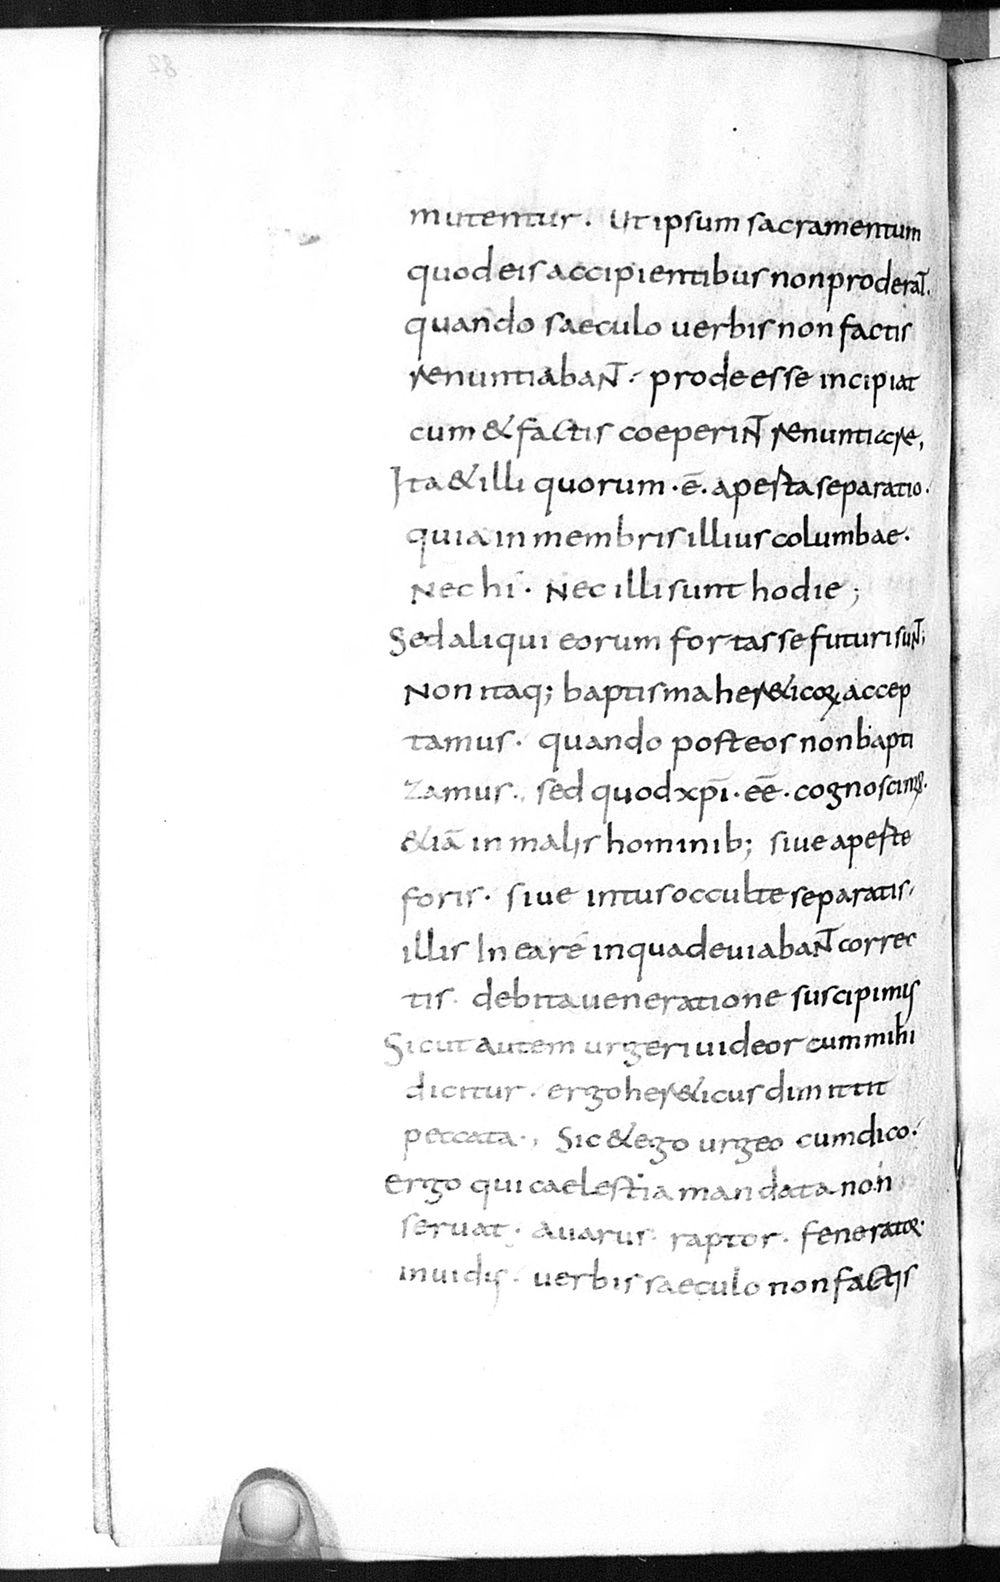 mutentur. Ut ipsum sacramentum
quod eis accipientibus non proderaT.
quando saeculo uerbis non factis
renuntiabaNT. prodeesse incipiat
cum & factis coeperiNT renuntiare,
Ita & illi quorum ·ē· aperta separatio.
quia in membris illius columbae.
Nec hi. Nec illi sunt hodie;
Sed aliqui eorum fortasse futuri suNT;
Non itaq; baptisma her&icoꝝ accep
tamus. quando post eos non bapti
zamus., sed quod xp̄i · eē · cognoscim&.
&iā in malis hominib; siue aperte
foris. siue intus occulte separatis,
illis In ea re in qua deuiabaNT correc
tis. debita ueneratione suscipimus
Sicut autem urgeri uideor cum mihi
dicitur. ergo her&icus dimittit
peccata., Sic & ego urgeo cum dico.
Ergo qui caelestia mandata non
seruat. auarus. raptor. fenerator.
inuidus. uerbis saeculo non factis
82